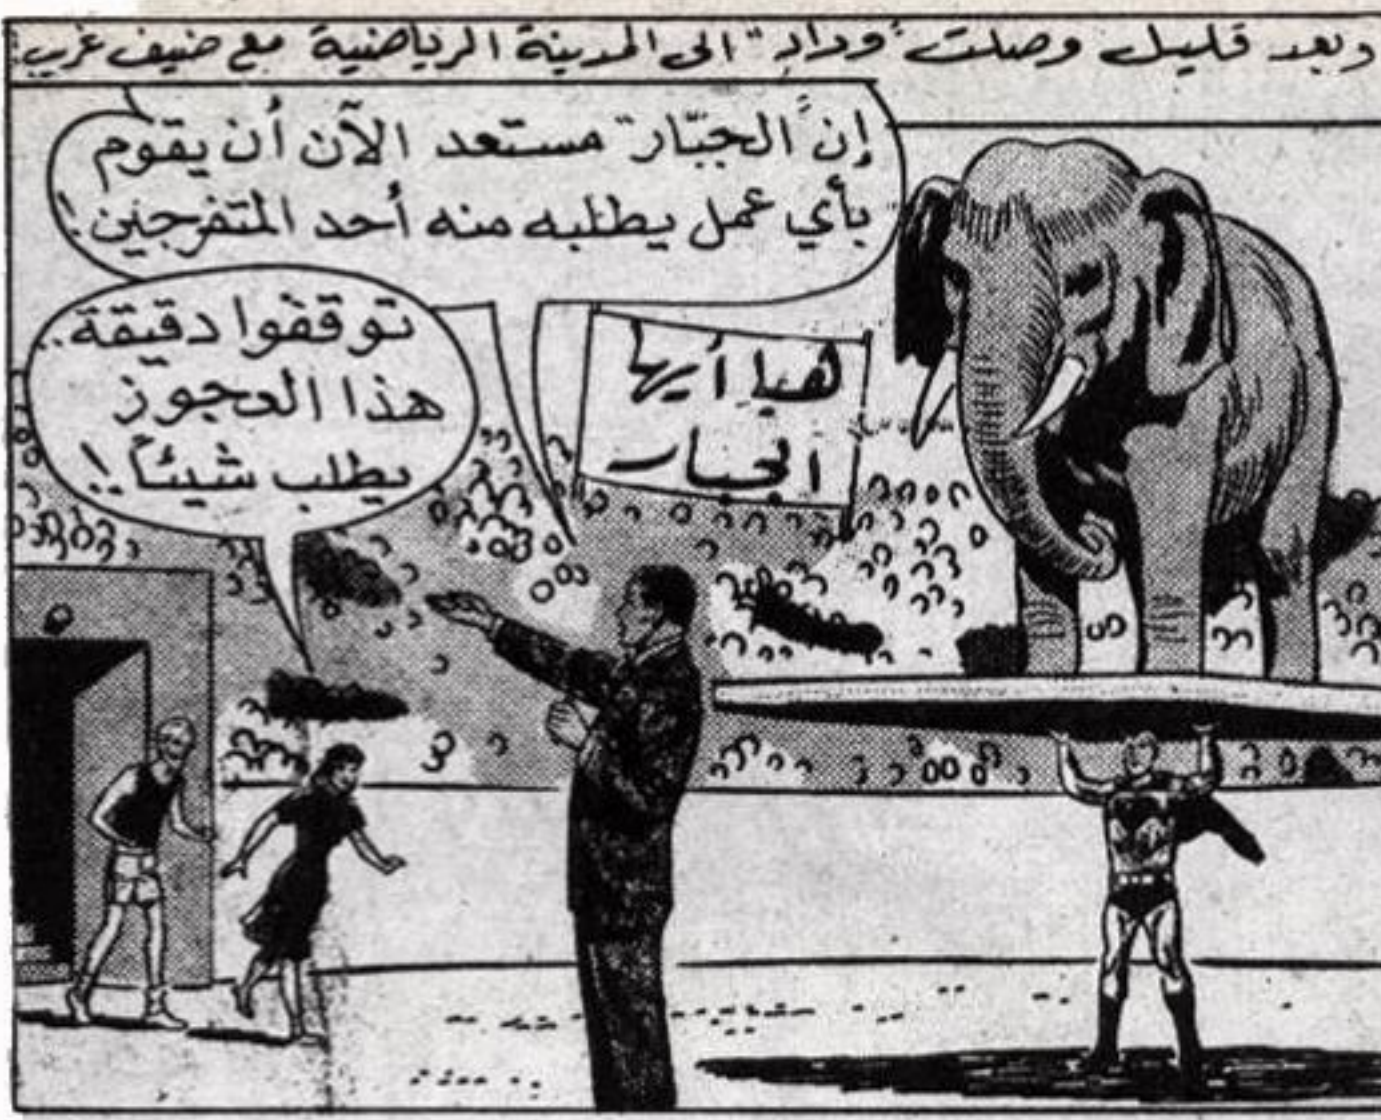 وبعد قليل وصلت "وداد" الى المدينة الرياضية مع ضيف غريب:
إنّ "الجبّار" مستعد الآن أن يقوم
بأي عمل يطلبه منه أحد المتفرجين!
توقفوا دقيقة..
هذا العجوز
يطلب شيئاً!!
هيا أيها
الجبار